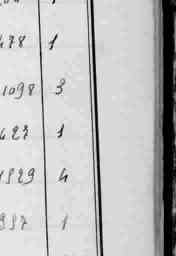 478 1
1098 3
427 1
1929 4
937 1